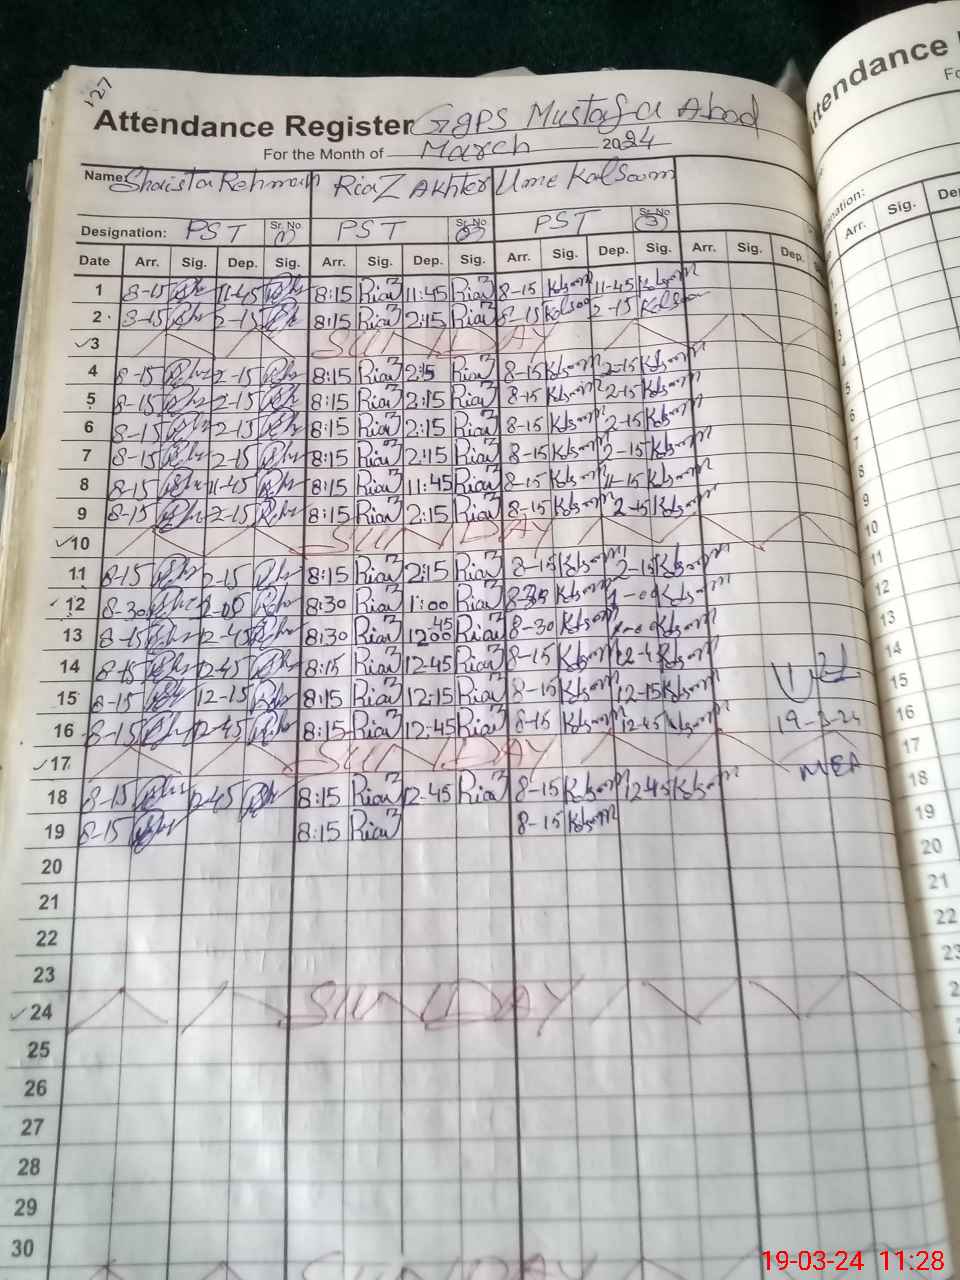 127
Attendance Register GGPS Mustafa Abad
For the Month of March 2024
Name: Shaista Rehman Riaz Akhter Ume Kalsoom
Designation: PST Sr. No. 1 PST Sr. No. 2 PST Sr. No. 3
Date Arr. Sig. Dep. Sig. Arr. Sig. Dep. Sig. Arr. Sig. Dep. Sig. Arr. Sig. Dep.
1 8-15 11-45 8:15 Riaz 11:45 Riaz 8-15 Kalsoom 11-45 Kalsoom
2 8-15 2-15 8:15 Riaz 2:15 Riaz 8-15 Kalsoom 2-15 Kalsoom
3 SUNDAY
4 8-15 2-15 8:15 Riaz 2:15 Riaz 8-15 Kalsoom 2-15 Kalsoom
5 8-15 2-15 8:15 Riaz 2:15 Riaz 8-15 Kalsoom 2-15 Kalsoom
6 8-15 2-15 8:15 Riaz 2:15 Riaz 8-15 Kalsoom 2-15 Kalsoom
7 8-15 2-15 8:15 Riaz 2:15 Riaz 8-15 Kalsoom 2-15 Kalsoom
8 8-15 11-45 8:15 Riaz 11:45 Riaz 8-15 Kalsoom 11-15 Kalsoom
9 8-15 2-15 8:15 Riaz 2:15 Riaz 8-15 Kalsoom 2-15 Kalsoom
10 SUNDAY
11 8-15 2-15 8:15 Riaz 2:15 Riaz 8-15 Kalsoom 2-15 Kalsoom
12 8-30 8:30 Riaz 1:00 Riaz 8-30 Kalsoom 1-00 Kalsoom
13 8-15 12-45 8:30 Riaz 12:00 45 Riaz 8-30 Kalsoom Kalsoom
14 8-15 12-45 8:15 Riaz 12-45 Riaz 8-15 Kalsoom 12-45 Kalsoom
15 8-15 12-15 8:15 Riaz 12:15 Riaz 8-15 Kalsoom 12-15 Kalsoom
16 8-15 12-45 8:15 Riaz 12:45 Riaz 8-15 Kalsoom 12-45 Kalsoom
19-3-24
17 SUNDAY
MEA
18 8-15 12-45 8:15 Riaz 12-45 Riaz 8-15 Kalsoom 12-45 Kalsoom
19 8-15 8:15 Riaz 8-15 Kalsoom
20
21
22
23
24 SUNDAY
25
26
27
28
29
30
SUNDAY
Attendance
Arr. Sig.
4
5
6
7
8
9
10
11
12
13
14
15
16
17
18
19
20
21
22
23
19-03-24 11:28